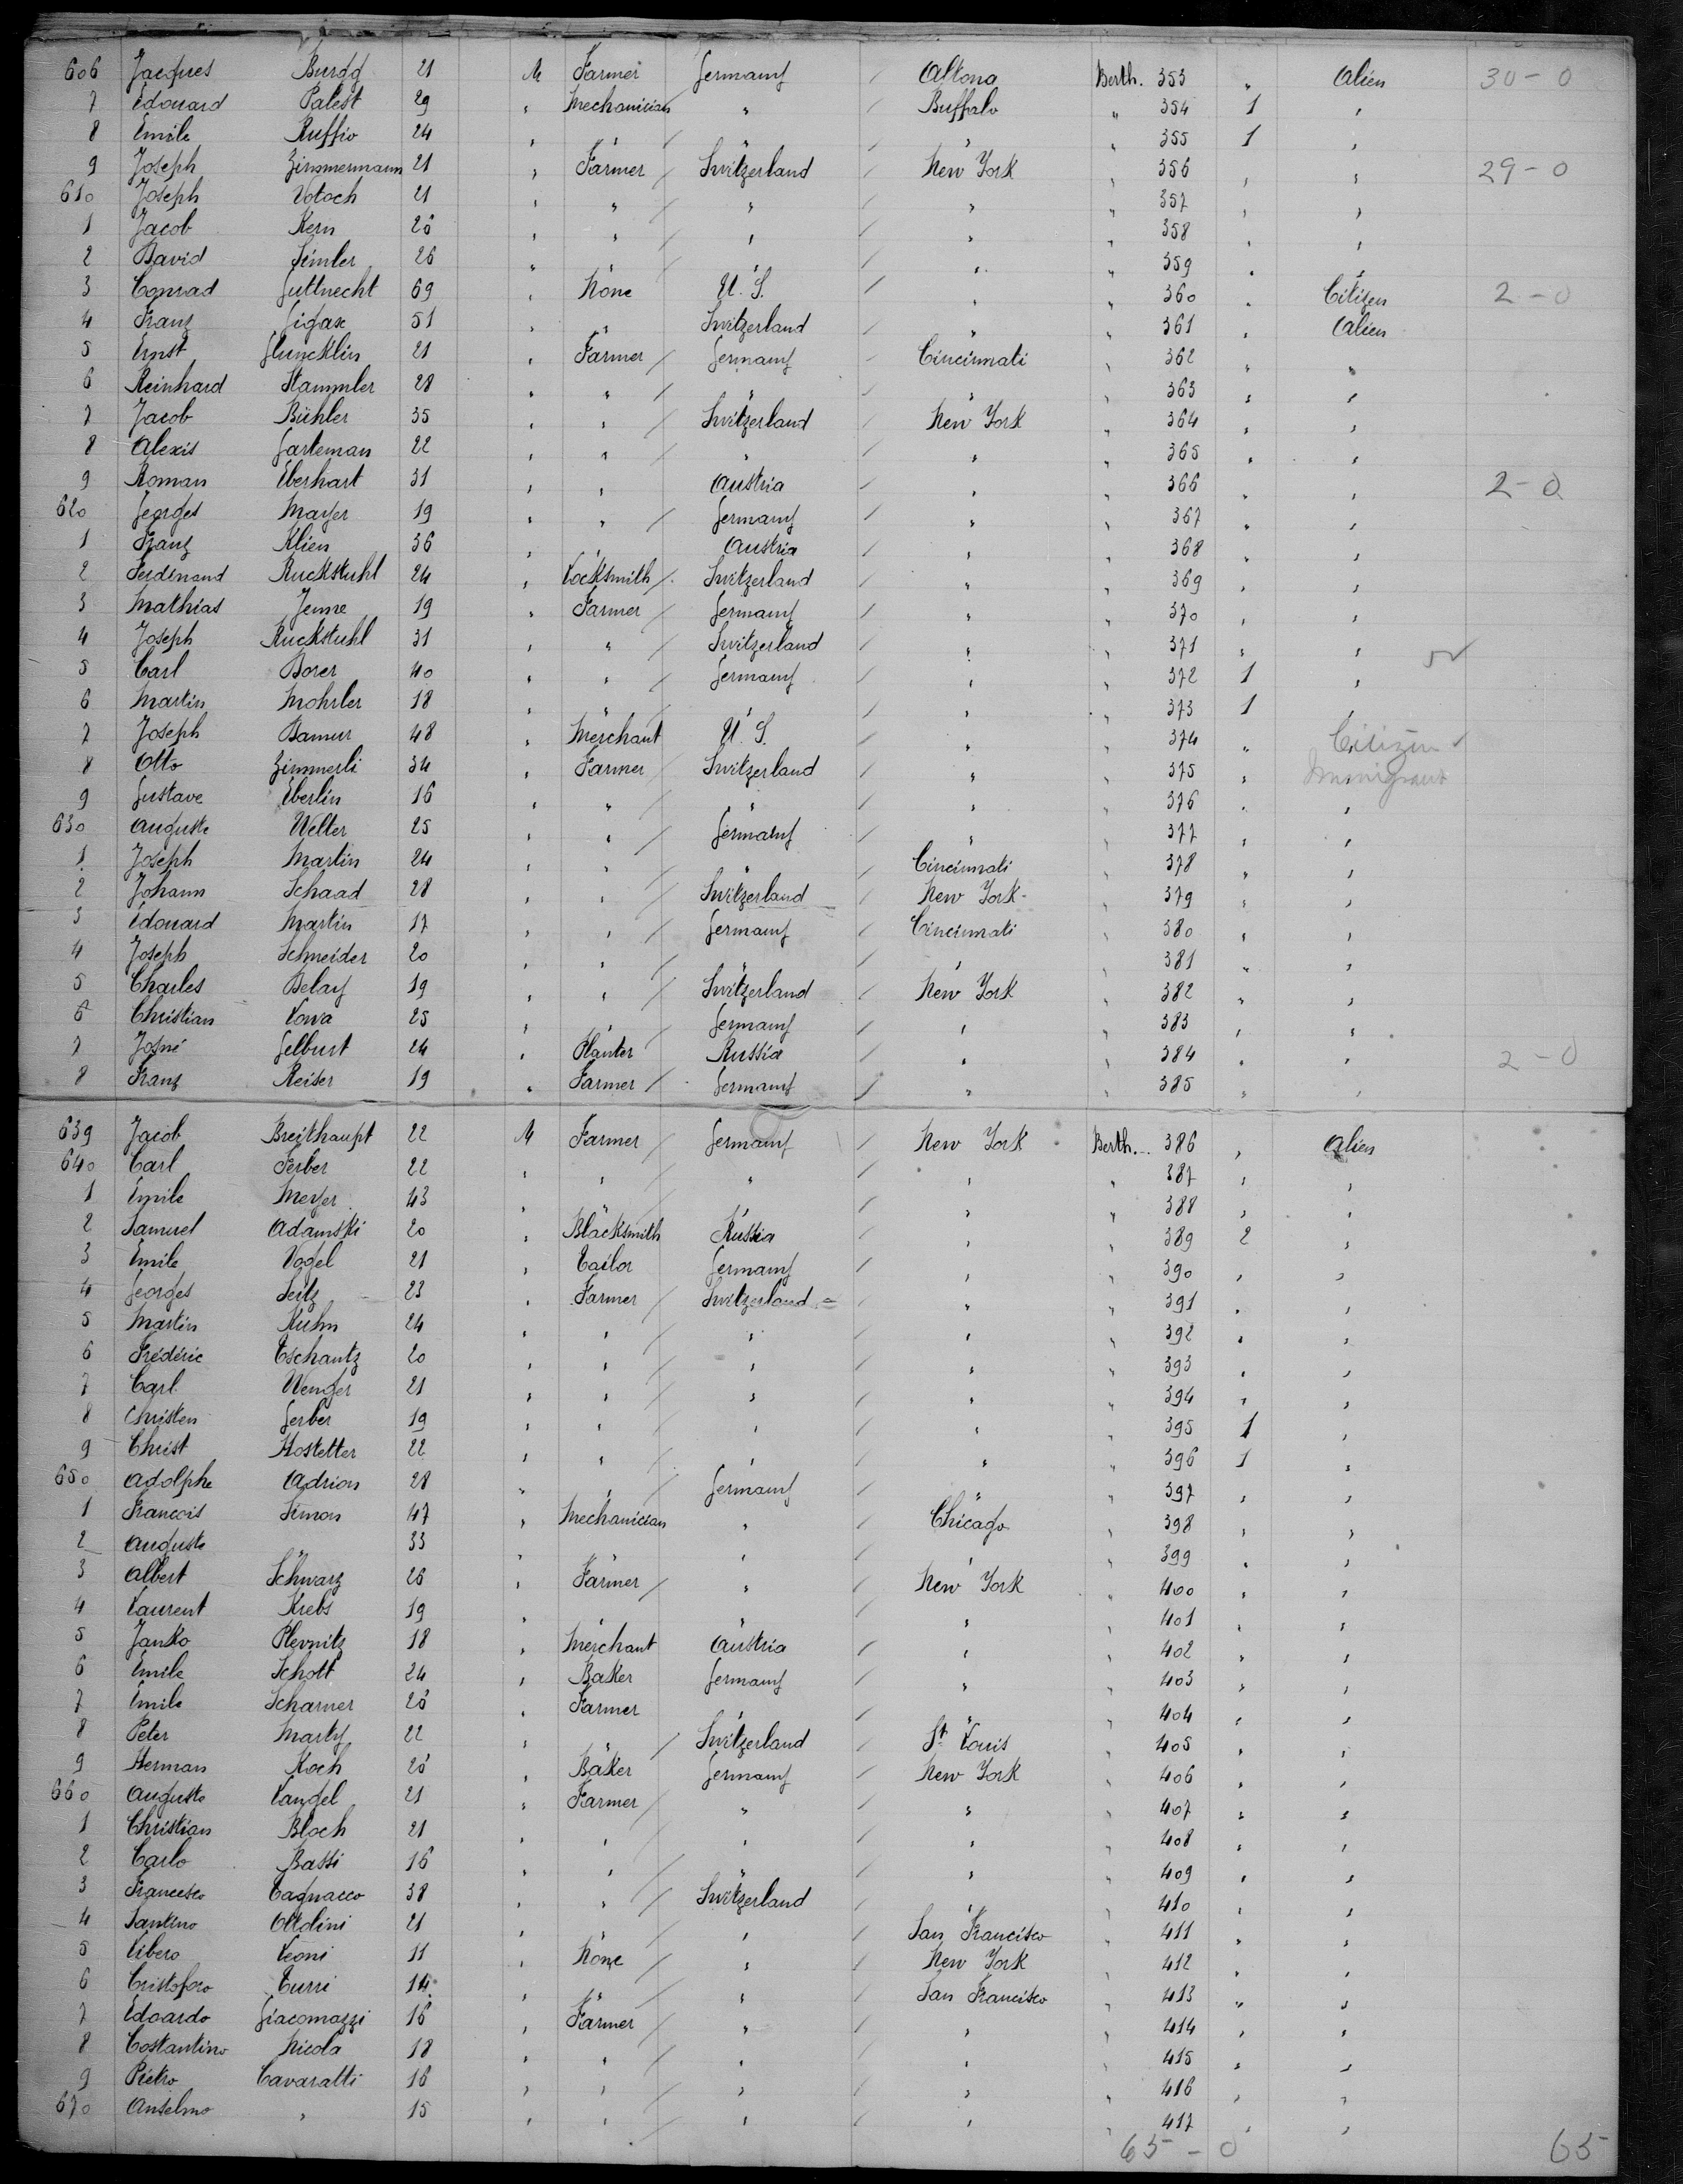 606 Jacques Burgg 21 M Farmer Germany / Altona Berth. 353 " Alien 30-0
7 Edouard Palest 29 " Mechanician " / Buffalo " 354 1 "
8 Emile Ruffio 24 " " / " / " " 355 1 "
9 Joseph Zimmermann 21 " Farmer / Switzerland / New York " 356 " " 29-0
610 Joseph Votoch 21 " " / " / " " 357 " "
1 Jacob Kern 28 " " / " / " " 358 " "
2 David Simler 26 " " / " / " " 359 " "
3 Conrad Guttnecht 69 " None U.S. / " " 360 " Citizen 2-0
4 Franz Gigax 51 " " Switzerland / " " 361 " Alien
5 Ernst Gluncklin 21 " Farmer / Germany / Cincinnati " 362 " "
6 Reinhard Stammler 28 " " / " / " " 363 " "
7 Jacob Bichler 35 " " / Switzerland / New York " 364 " "
8 Alexis Garteman 22 " " / " / " " 365 " "
9 Roman Eberhart 31 " " Austria / " " 366 " " 2-0
620 Georges Mayer 19 " " / Germany / " " 367 " "
1 Franz Klien 36 " " Austria / " " 368 " "
2 Ferdinand Ruckstuhl 24 " Locksmith / Switzerland / " " 369 " "
3 Mathias Jenne 19 " Farmer / Germany / " " 370 " "
4 Joseph Ruckstuhl 31 " " / Switzerland / " " 371 " "
5 Carl Borer 40 " " / Germany / " " 372 1 "
6 Martin Mohrler 18 " " / " / " " 373 1 "
7 Joseph Bamur 48 " Merchant U.S. / " " 374 " Citizen
8 Otto Zimmerli 34 " Farmer / Switzerland / " " 375 " Immigrant
9 Gustave Eberlin 16 " " / " / " " 376 " "
630 Auguste Welter 25 " " / Germany / " " 377 " "
1 Joseph Martin 24 " " / " / Cincinnati " 378 " "
2 Johann Schaad 28 " " / Switzerland / New York " 379 " "
3 Edouard Martin 17 " " / Germany / Cincinnati " 380 " "
4 Joseph Schneider 20 " " / " / " " 381 " "
5 Charles Belay 19 " " / Switzerland / New York " 382 " "
6 Christian Lowa 25 " " / Germany / " " 383 " "
7 Gelburt 24 " Planter Russia / " " 384 " " 2-0
8 Franz Reiser 19 " Farmer / Germany / " " 385 " "
639 Jacob Breithaupt 22 M Farmer / Germany / New York Berth. 386 " Alien
640 Carl Ferber 22 " " / " / " " 387 " "
1 Emile Meyer 43 " " / " / " " 388 " "
2 Samuel Adamski 20 " Blacksmith Russia / " " 389 2 "
3 Emile Vogel 21 " Tailor Germany / " " 390 " "
4 Georges Seitz 23 " Farmer / Switzerland / " " 391 " "
5 Martin Kuhn 24 " " / " / " " 392 " "
6 Frédéric Tschantz 20 " " / " / " " 393 " "
7 Carl Wenger 21 " " / " / " " 394 " "
8 Christen Gerber 19 " " / " / " " 395 1 "
9 Christ Hostetter 22 " " / " / " " 396 1 "
650 Adolphe Adrion 28 " " / Germany / " " 397 " "
1 Francois Simon 47 " Mechanician " / Chicago " 398 " "
2 Auguste " 33 " " " / " " 399 " "
3 Albert Schwarz 26 " Farmer / " / New York " 400 " "
4 Laurent Krebs 19 " " / " / " " 401 " "
5 Janko Plevnitz 18 " Merchant Austria / " " 402 " "
6 Emile Schott 24 " Baker Germany / " " 403 " "
7 Emile Scharner 28 " Farmer " / " " 404 " "
8 Peter Marty 22 " " / Switzerland / St. Louis " 405 " "
9 Herman Koch 28 " Baker Germany / New York " 406 " "
660 Auguste Langel 21 " Farmer / " / " " 407 " "
1 Christian Bloch 21 " " / " / " " 408 " "
2 Carlo Bassi 16 " " / " / " " 409 " "
3 Francesco Tagnacco 38 " " / Switzerland / " " 410 " "
4 Santino Ottolini 21 " " / " / San Francisco " 411 " "
5 Libero Leoni 11 " None " / New York " 412 " "
6 Cristoforo Turri 14 " " " / San Francisco " 413 " "
7 Edoardo Giacomazzi 16 " Farmer / " / " " 414 " "
8 Costantino Nicola 18 " " / " / " " 415 " "
9 Pietro Cavaratti 16 " " / " / " " 416 " "
670 Anselmo " 15 " " / " / " " 417 " "
65-0 65